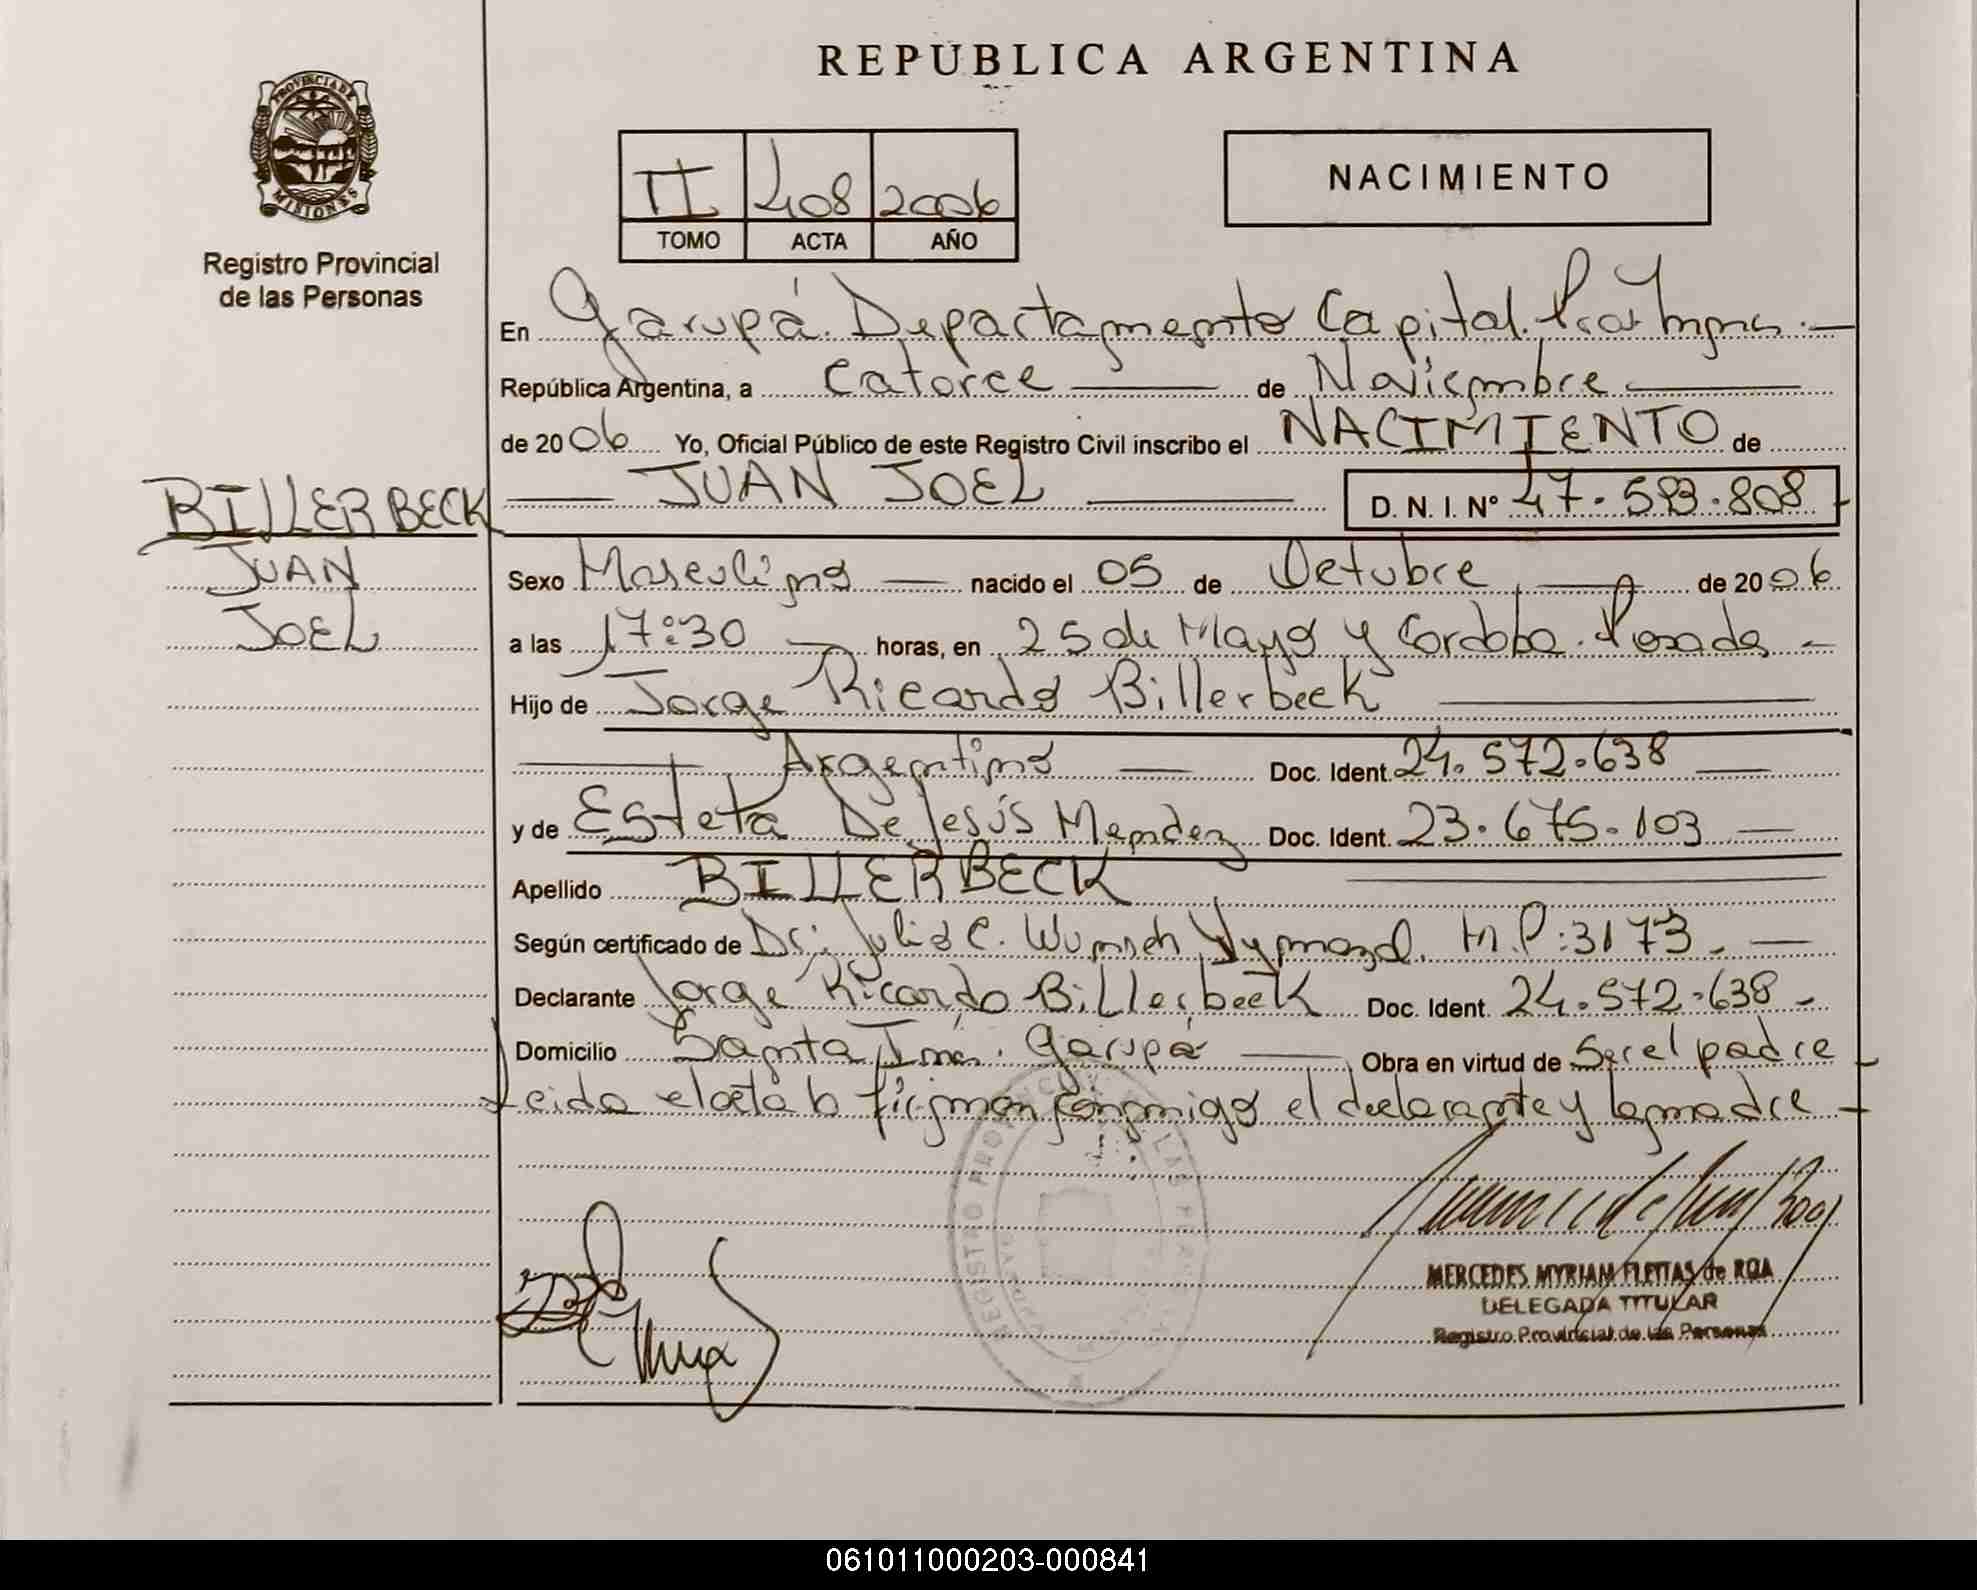 REPÚBLICA ARGENTINA
PROVINCIA DE
MISIONES
Registro Provincial
de las Personas
II 408 2006
TOMO ACTA AÑO
NACIMIENTO
En Garupá. Departamento Capital.
República Argentina, a Catorce de Noviembre
de 2006 Yo, Oficial Público de este Registro Civil inscribo el NACIMIENTO de
JUAN JOEL D. N. I. Nº 47.593.808
BILLERBECK
JUAN
JOEL
Sexo Masculino nacido el 05 de Octubre de 2006
a las 17:30 horas, en 25 de Mayo y Cordoba. Posadas
Hijo de Jorge Ricardo Billerbeck
Argentino Doc. Ident. 24.572.638
y de Estela De Jesús Mendez Doc. Ident. 23.675.103
Apellido BILLERBECK
Según certificado de Dr: Julio C. Wunsch M.P:3173.
Declarante Jorge Ricardo Billerbeck Doc. Ident. 24.572.638
Domicilio Santa Inés. Garupá Obra en virtud de Ser el padre
Leida el acta la firman conmigo el declarante y la madre
MERCEDES MYRIAM FLEITAS de ROA
DELEGADA TITULAR
Registro Provincial de las Personas
061011000203-000841